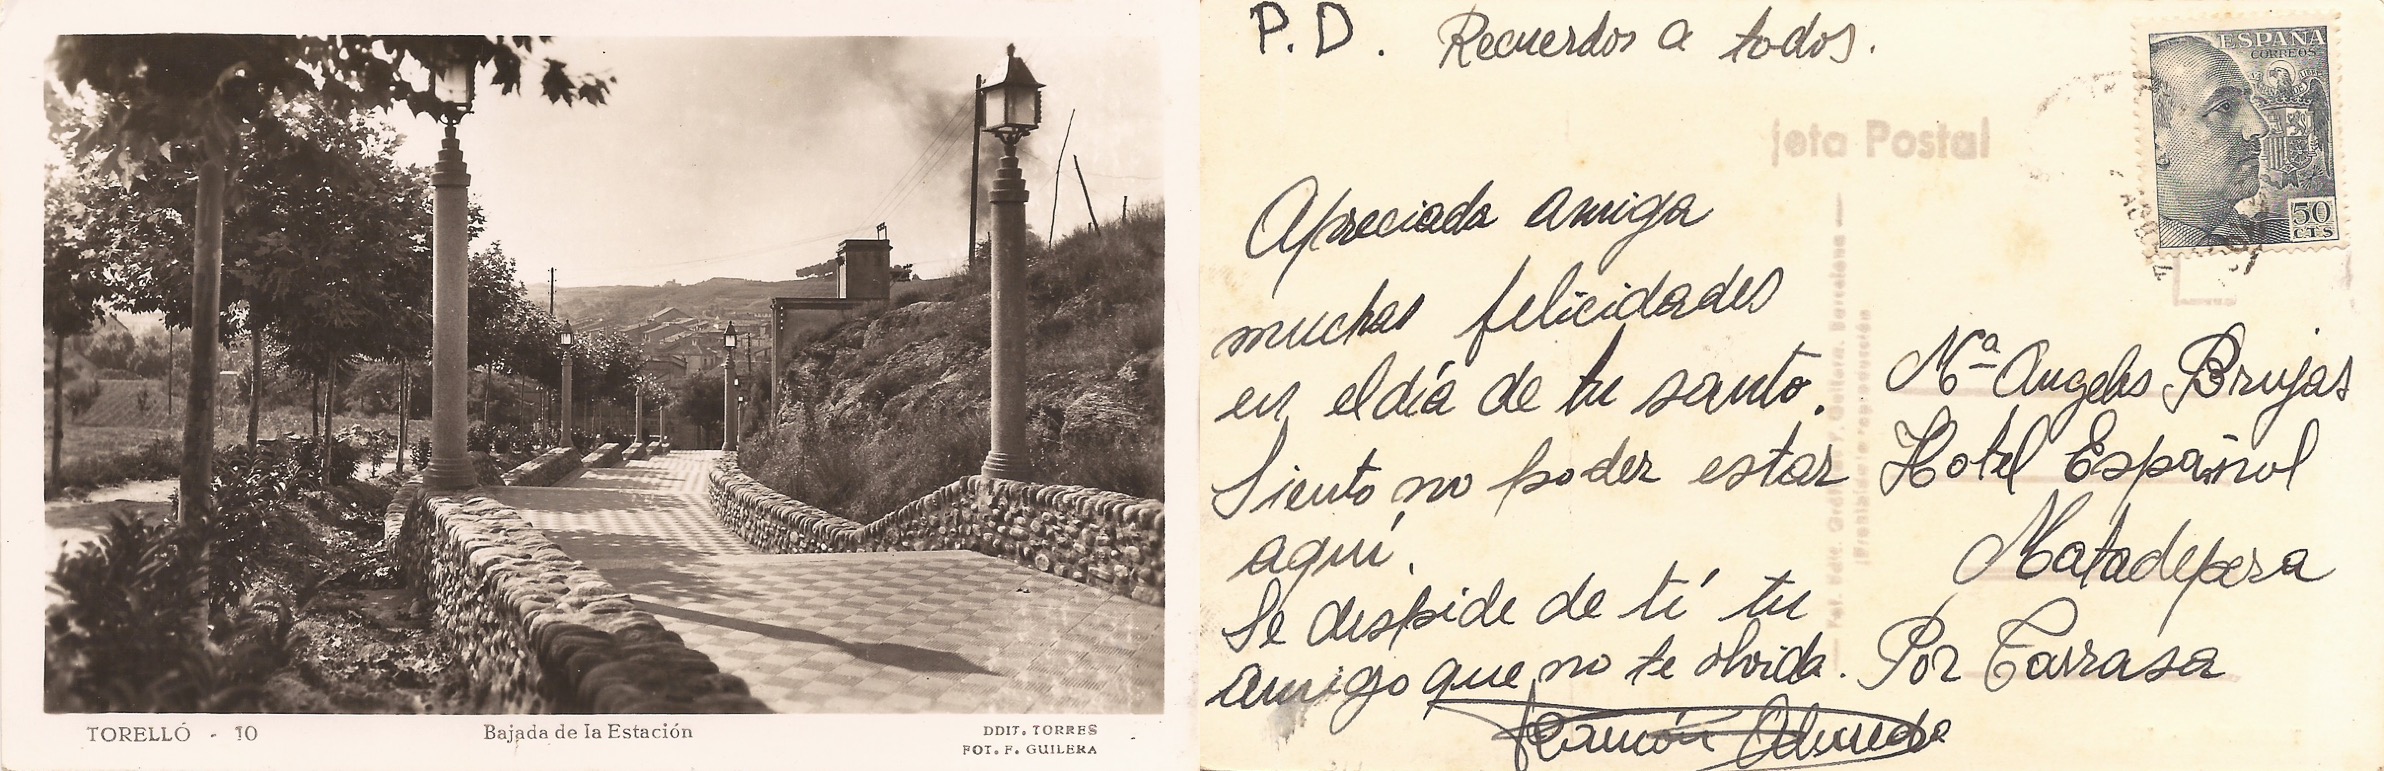 TORELLÓ - 10
Bajada de la Estación
DDIT. TORRES
FOT. F. GUILERA
P.D. Recuerdos a todos.
jeta Postal
ESPAÑA
CORREOS
50
CTS
Apreciada amiga
muchas felicidades
en el día de tu santo.
Siento no poder estar
aquí.
Se despide de tí tu
amigo que no te olvida.
Ramón
Mª Angeles Brujas
Hotel Español
Matadepera
Por Tarrasa
(Prohibida la reproducción